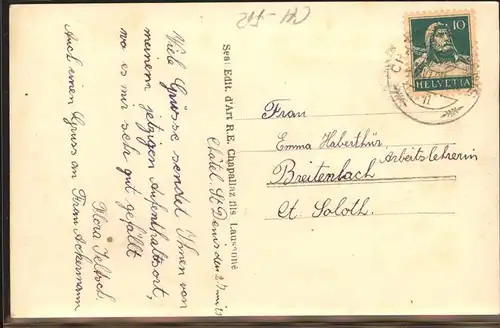 CH-FR
10
HELVETIA
Viele Grüsse sendet Ihnen von
meinem jetzigen Aufenthaltsort,
wo es mir sehr gut gefällt
Flora Jeltsch.
Auch einen Gruss an Frau Ackermann
Châtel St Denis den
Edit. d'Art R.E. Chapallaz fils Lausanne
Frau
Emma Haberthür,
Arbeitslehrerin
Breitenbach
Ct. Soloth.